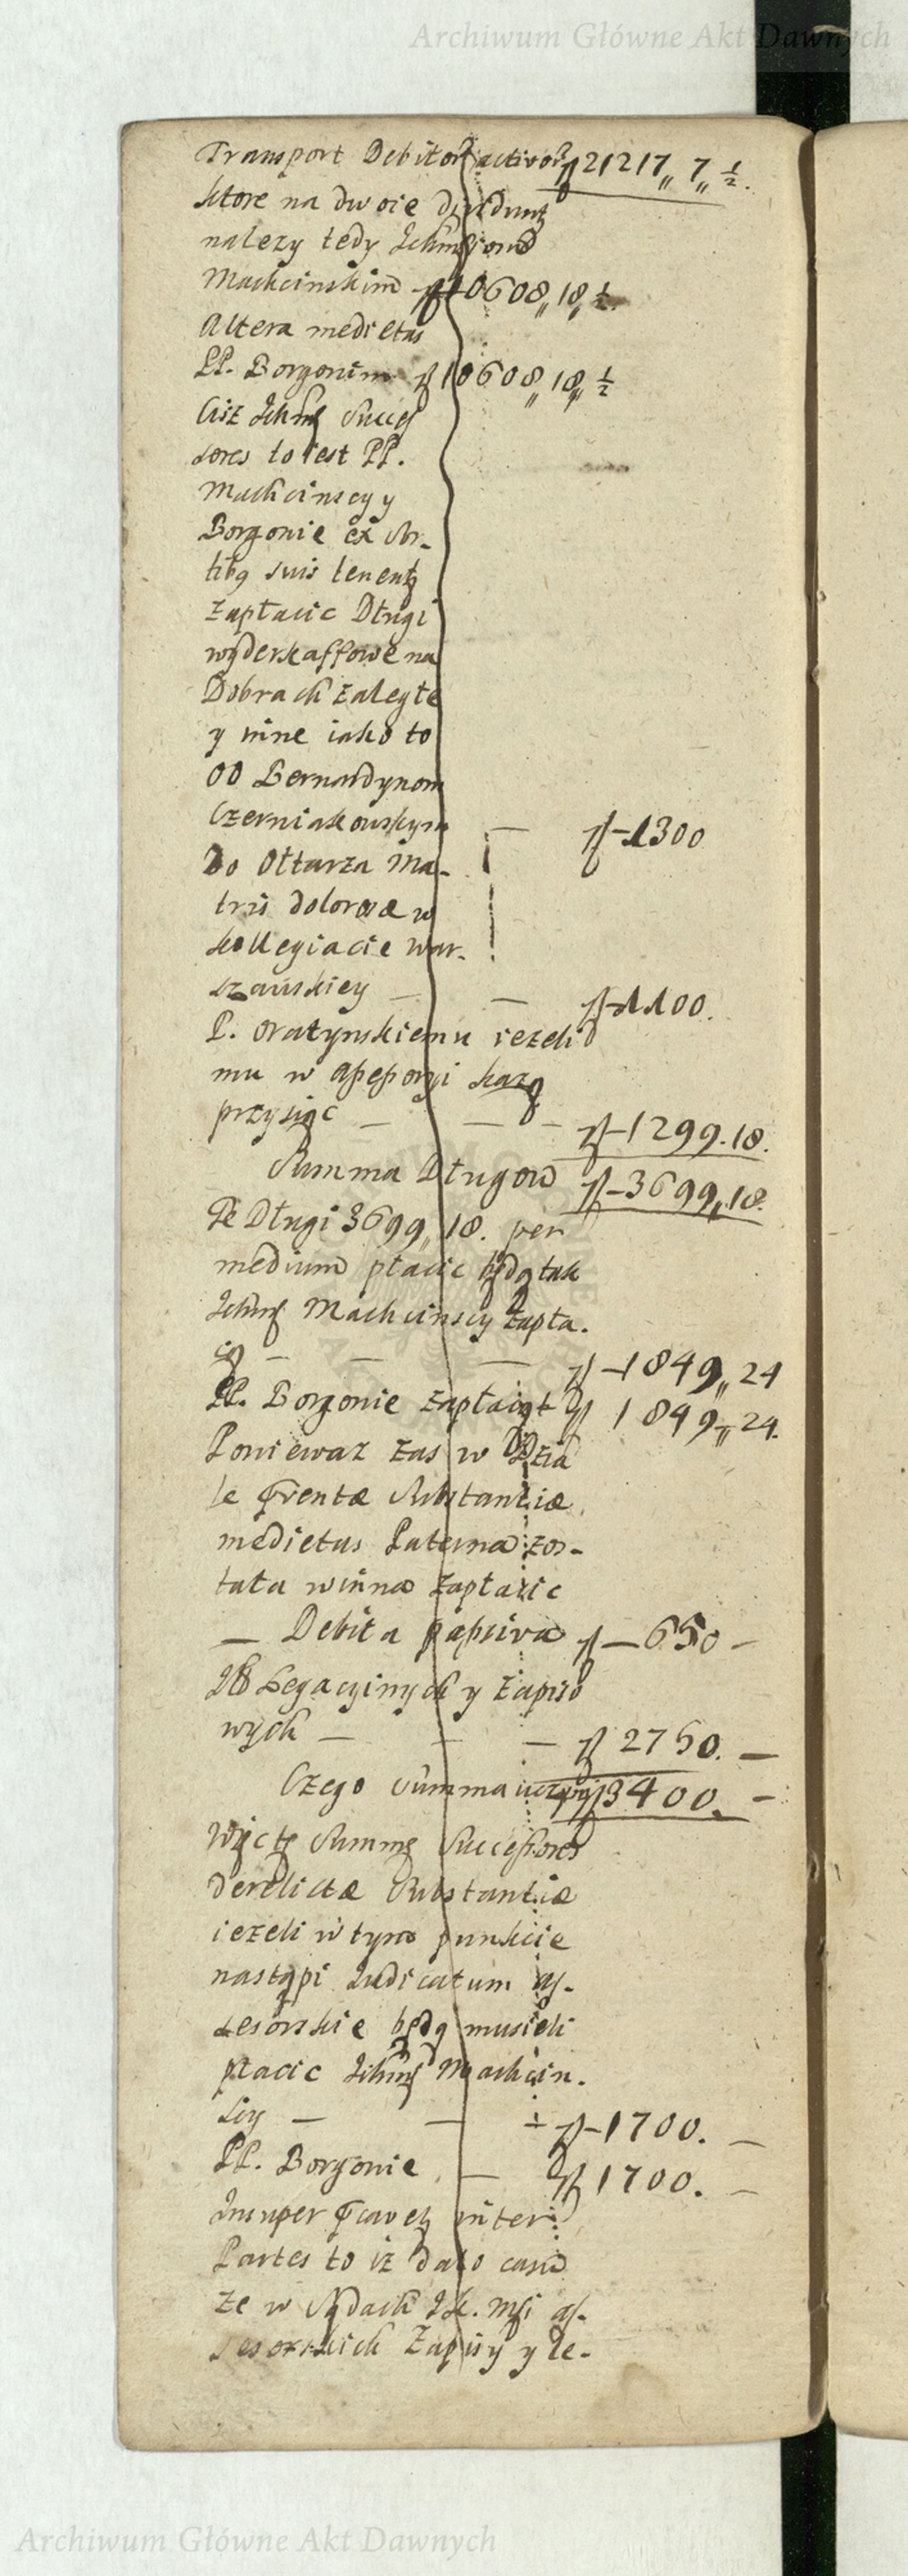 Archiwum Główne Akt Dawnych
Transport Debitor activor ƶł 21217,, 7,, ½.
ktore na dwoie
nalezy tedy Ichm
Machcinskim ƶł 10608,, 18,, ½.
Altera medietas
PP. Borgonim ƶł 10608,, 18,, ½
Ciz Ichm Succes
sores to iest PP.
Machcinscy y
Borgonie ex Sor-
tibq suis tenent
zapłacic Długi
wyderkaffowe na
Dobrach zaległe
y inne iako to
OO Bernardynom
Czerniakowskym — ƶł-1300
Do Ołtarza Ma-
tris dolorosæ w
kollegiacie War-
szawskiey — — ƶł-1100.
P. Oratynskiemu iezeli
mu w assessoryi kazą
przysiąc — — — ƶł-1299.18.
Summa Długow ƶł-3699,,18.
Te Długi 3699,, 18. per
medium płacic będą tak
Ichm Machcinscy zapła-
cą — — — ƶł-1849,, 24
PP. Borgonie zapłacą ƶł 1849,, 24.
Poniewaz zas w Dzia
le Substantiæ
medietas Paterna zos-
tała winna zapłacic
— Debita passiva ƶł — 650 —
Legacyinych y zapiso
wych — — — ƶł 2750. —
Czego summa uczyni ƶł 3400. —
Więc tę Summę Successores
derelictæ Substantiæ
iezeli w tym punkcie
nastąpi Iudicatum as-
sesorskie będą musieli
płacic Ichm Machcin-
scy — — ƶł-1700. —
PP. Borgonie — ƶł 1700. —
Insuper inter
Partes to iz dato casu
ze w Sądach as-
sesorskich Zapisy y le-
Archiwum Główne Akt Dawnych